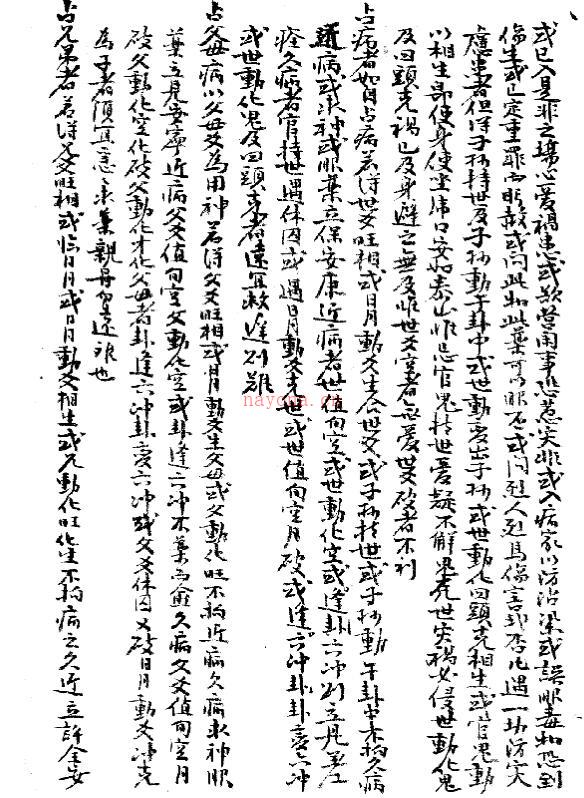 或已入是非之場心憂禍患或欲營用事恐惹災非或入病家以防沾染或誤服毒物恐到
傷生或已定重罪而盼赦或問此物此藥可服否或問烈人烈馬傷害我否凡遇一切防災
慮患者但得子孫持世及子孫動于卦中或世動變出子孫或世動化回頭相生或官鬼動
以相生即使身使坐虎口安如泰山非忌官鬼持世憂疑不解鬼克世災禍必侵世動化鬼
及回頭克禍已及身避之無及非世爻空者無憂世破者不利
占病者如自占病若得世爻旺相或日月動爻生合世爻或子孫持世或子孫動于卦中不拘久病
近病或求神或服藥立保安康近病者世值旬空或世動化空或逢卦六沖則立見
痊久病者官持世遇休囚或遇日月動爻克世或世值旬空月破或逢六沖卦卦變六沖
或世動化鬼及回頭克者速宜救遲則難
占父母病以父爻為用神若得父爻旺相或日月動爻生父母或父動化旺不拘近病久病求神服
藥立見安寧近病父爻值旬空父動化空或卦逢六沖不藥而愈久病父爻值旬空月
破父動化空化破父動化才化父母者卦逢六沖卦變六沖或父爻休囚又破日月動爻沖克
為子者須宜急求藥親身勿遠離也
占兄弟者若得兄爻旺相或臨日月或日月動爻相生或兄動化旺化生不拘病之久近立許全安